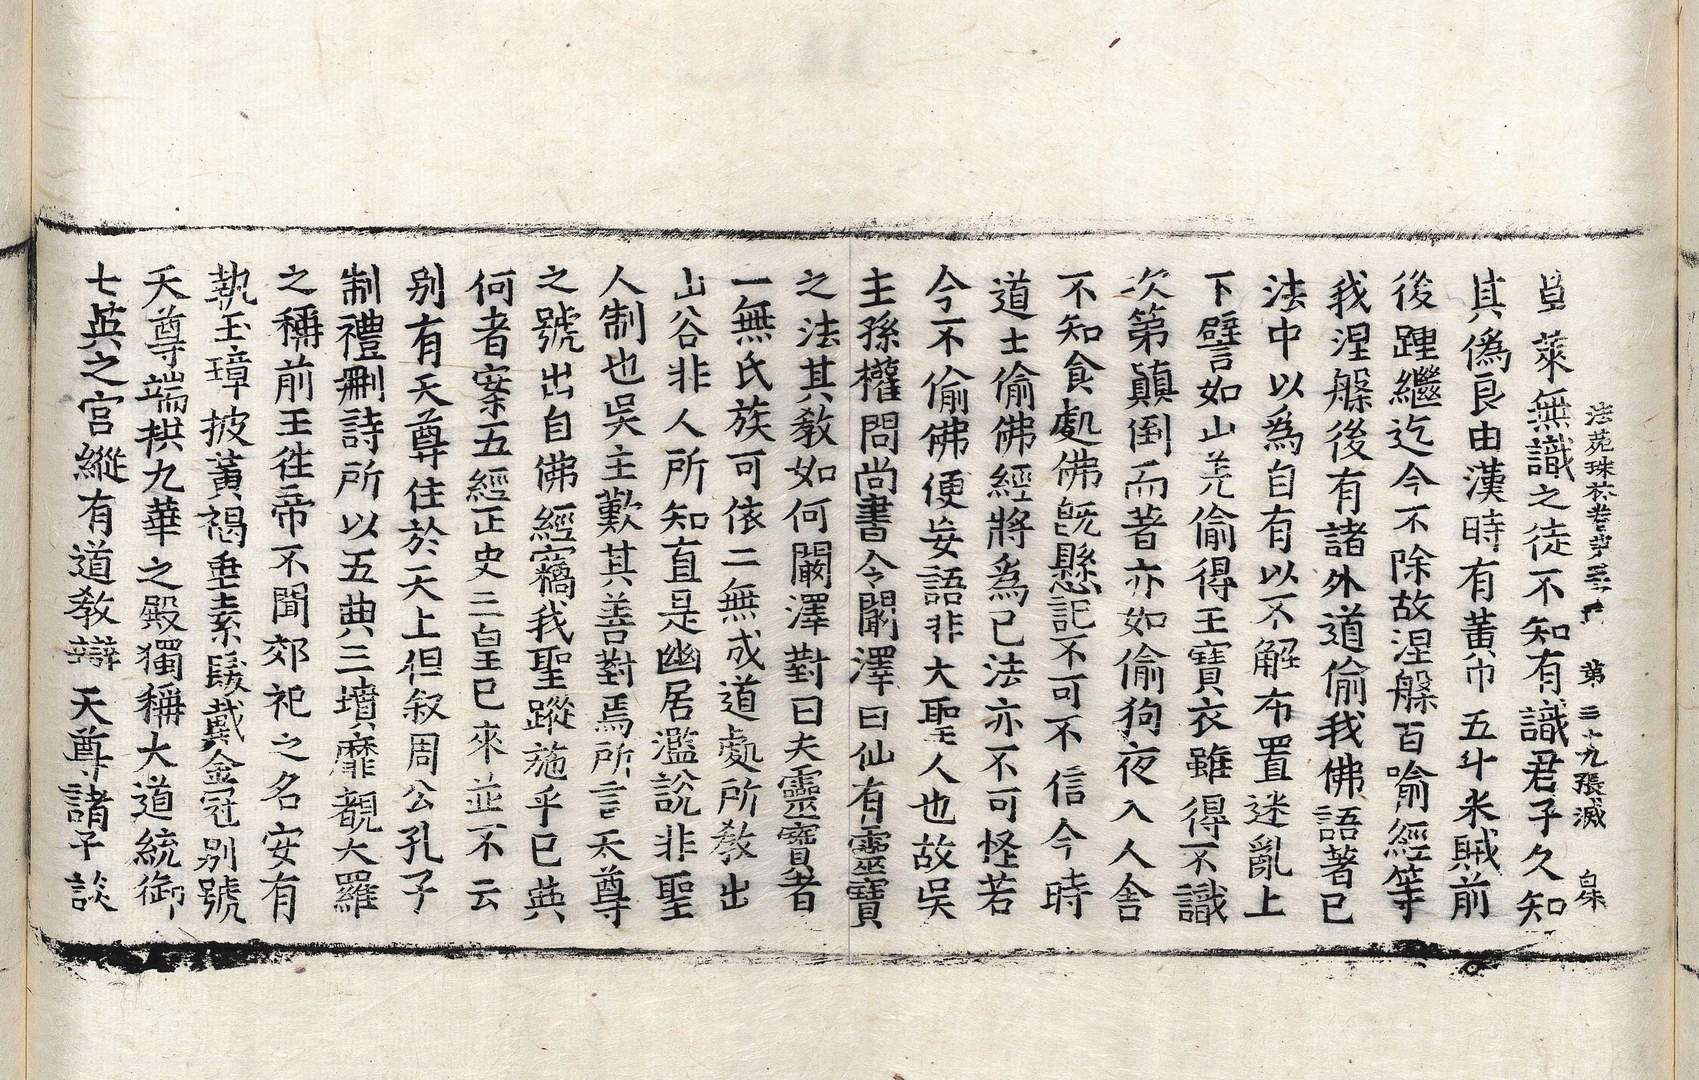 法苑珠林卷第五十五　第三十九張　滅　白朱
草萊無識之徒不知有識君子久知
其僞良由漢時有黃巾五斗米賊前
後踵繼迄今不除故涅槃百喻經等
我涅槃後有諸外道偷我佛語著已
法中以爲自有以不解布置迷亂上
下譬如山羌偷得王寶衣雖得不識
次第顚倒而著亦如偷狗夜入人舍
不知食處佛旣懸記不可不信今時
道士偷佛經將爲已法亦不可怪若
今不偷佛便妄語非大聖人也故吳
主孫權問尚書令闞澤曰仙有靈寶
之法其教如何闞澤對曰夫靈寶者
一無氏族可依二無成道處所教出
山谷非人所知直是幽居濫說非聖
人制也吳主歎其善對焉所言天尊
之號出自佛經竊我聖蹤施乎已典
何者案五經正史三皇已來並不云
別有天尊住於天上但叙周公孔子
制禮刪詩所以五典三墳靡覩大羅
之稱前王往帝不聞郊祀之名安有
執玉璋披黃褐垂素髮戴金冠別號
天尊端拱九華之殿獨稱大道統御
七英之宮縱有道教辯天尊諸子談